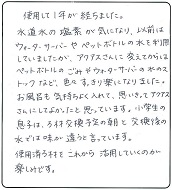 使用して1年が経ちました。
水道水の塩素が気になり、以前は
ウォーターサーバーやペットボトルの水を利用
していましたが、アクアスさんに変えてからは
ペットボトルのごみやウォーターサーバーの水のス
トックなど、色々すっきり楽になりました。
お風呂も気持ちよく入れて、思いきってアクアス
さんにしてよかったと思っています。小学生の
息子は、ろ材交換予定の朝と交換後の
水では味が違うと言っています。
使用済ろ材をこれから活用していくのが
楽しみです。